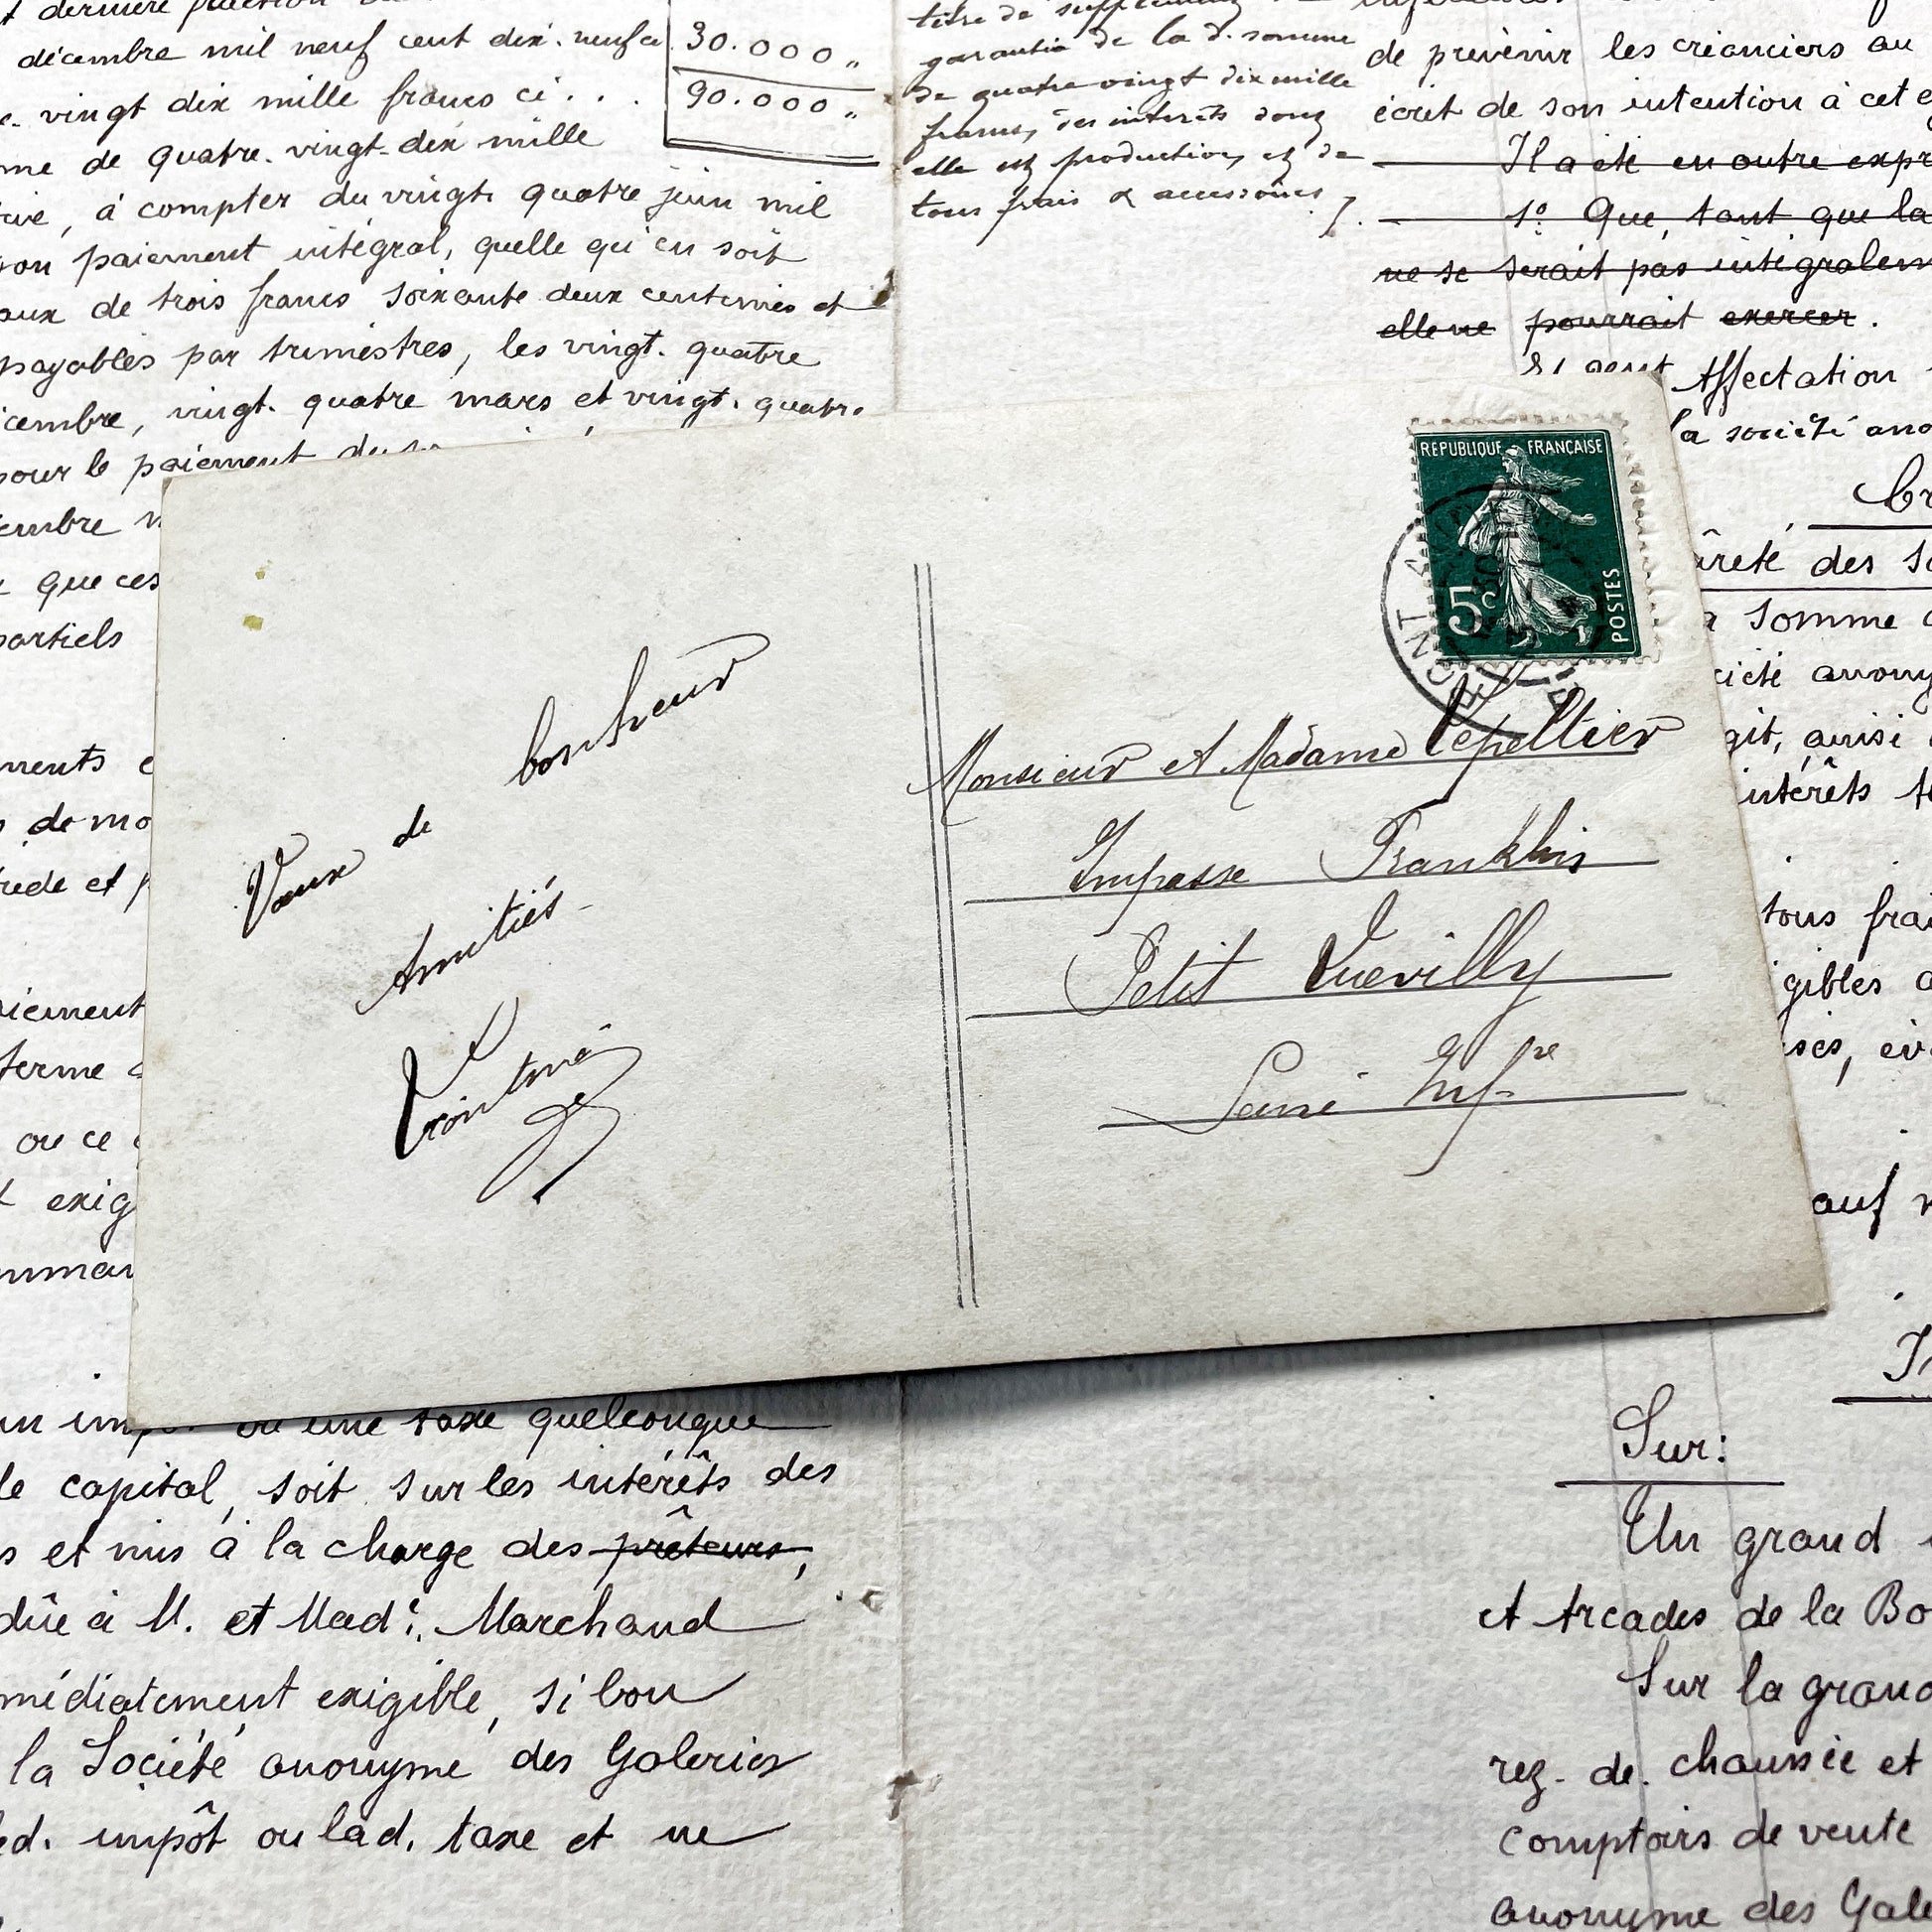 décembre mil neuf cent dix-neuf ci
30.000 "
vingt dix mille francs ci . . .
90.000 "
me de quatre-vingt-dix mille
à compter du vingt-quatre juin mil
paiement intégral, quelle qu'en soit
aux de trois francs soixante deux centimes et
payables par trimestres, les vingt-quatre
vingt-quatre mars et vingt-quatre
pour le paiement
que ces
partiels
de mo
et
ou ce
exig
ou une taxe quelconque
le capital, soit sur les intérêts des
s et mis à la charge des prêteurs,
dûe à M. et Mad.e Marchand
médiatement exigible, si bon
la Société anonyme des Galeries
ed. impôt ou lad. taxe et ne
titre de supplément
garantie de la d. somme
de quatre-vingt dix mille
francs, des intérêts dont
elle est productive, et de
tous frais & accessoires
de prévenir les créanciers au
écrit de son intention à cet
Il a été en outre expr
1º Que, tant que la
ne se serait pas intégralem
elle ne pourrait exercer.
Affectation
la société ano
ûreté des so
somme
ciété anony
git, ainsi
intérêts
tous frai
gibles
auf
Vœux de bonheur
Amitiés
REPUBLIQUE FRANÇAISE
5c
POSTES
Monsieur et Madame Lepeltier
Impasse Franklin
Petit Quevilly
Seine Infre
Sur:
Un grand
et Arcades de la Bo
Sur la grand
rez-de-chaussée et
comptoirs de vente
anonyme des Gale